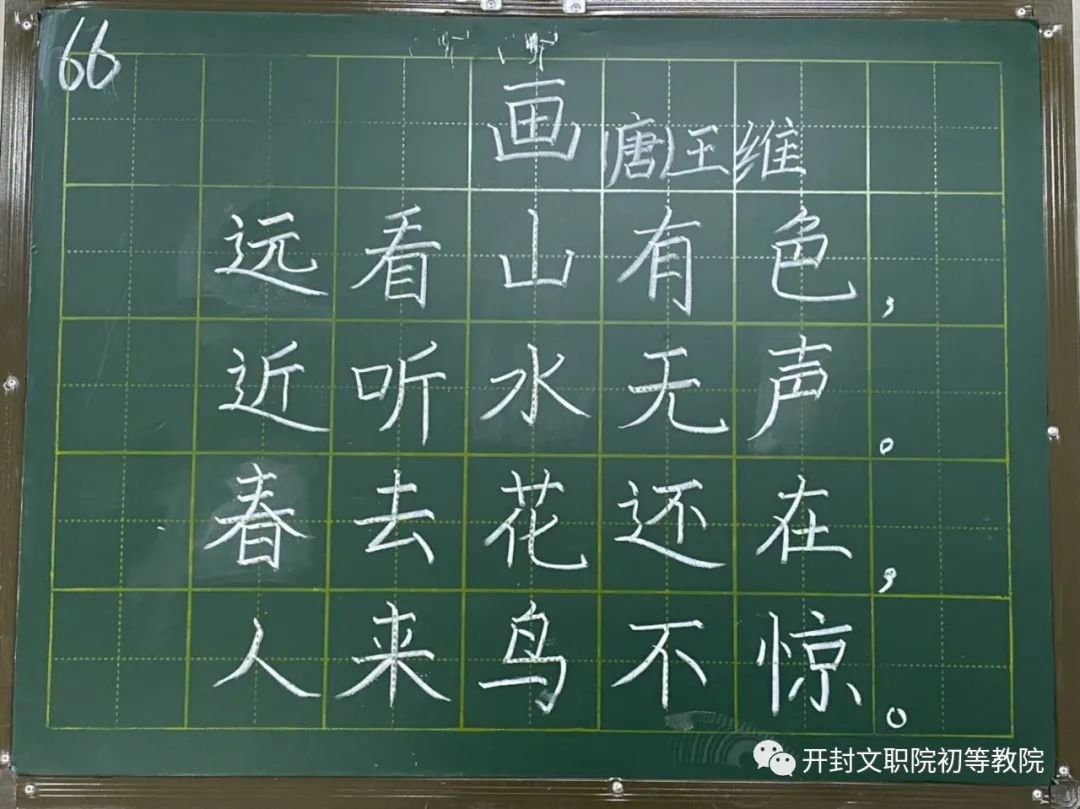 66
画
唐 王维
远看山有色，
近听水无声。
春去花还在，
人来鸟不惊。
开封文职院初等教院